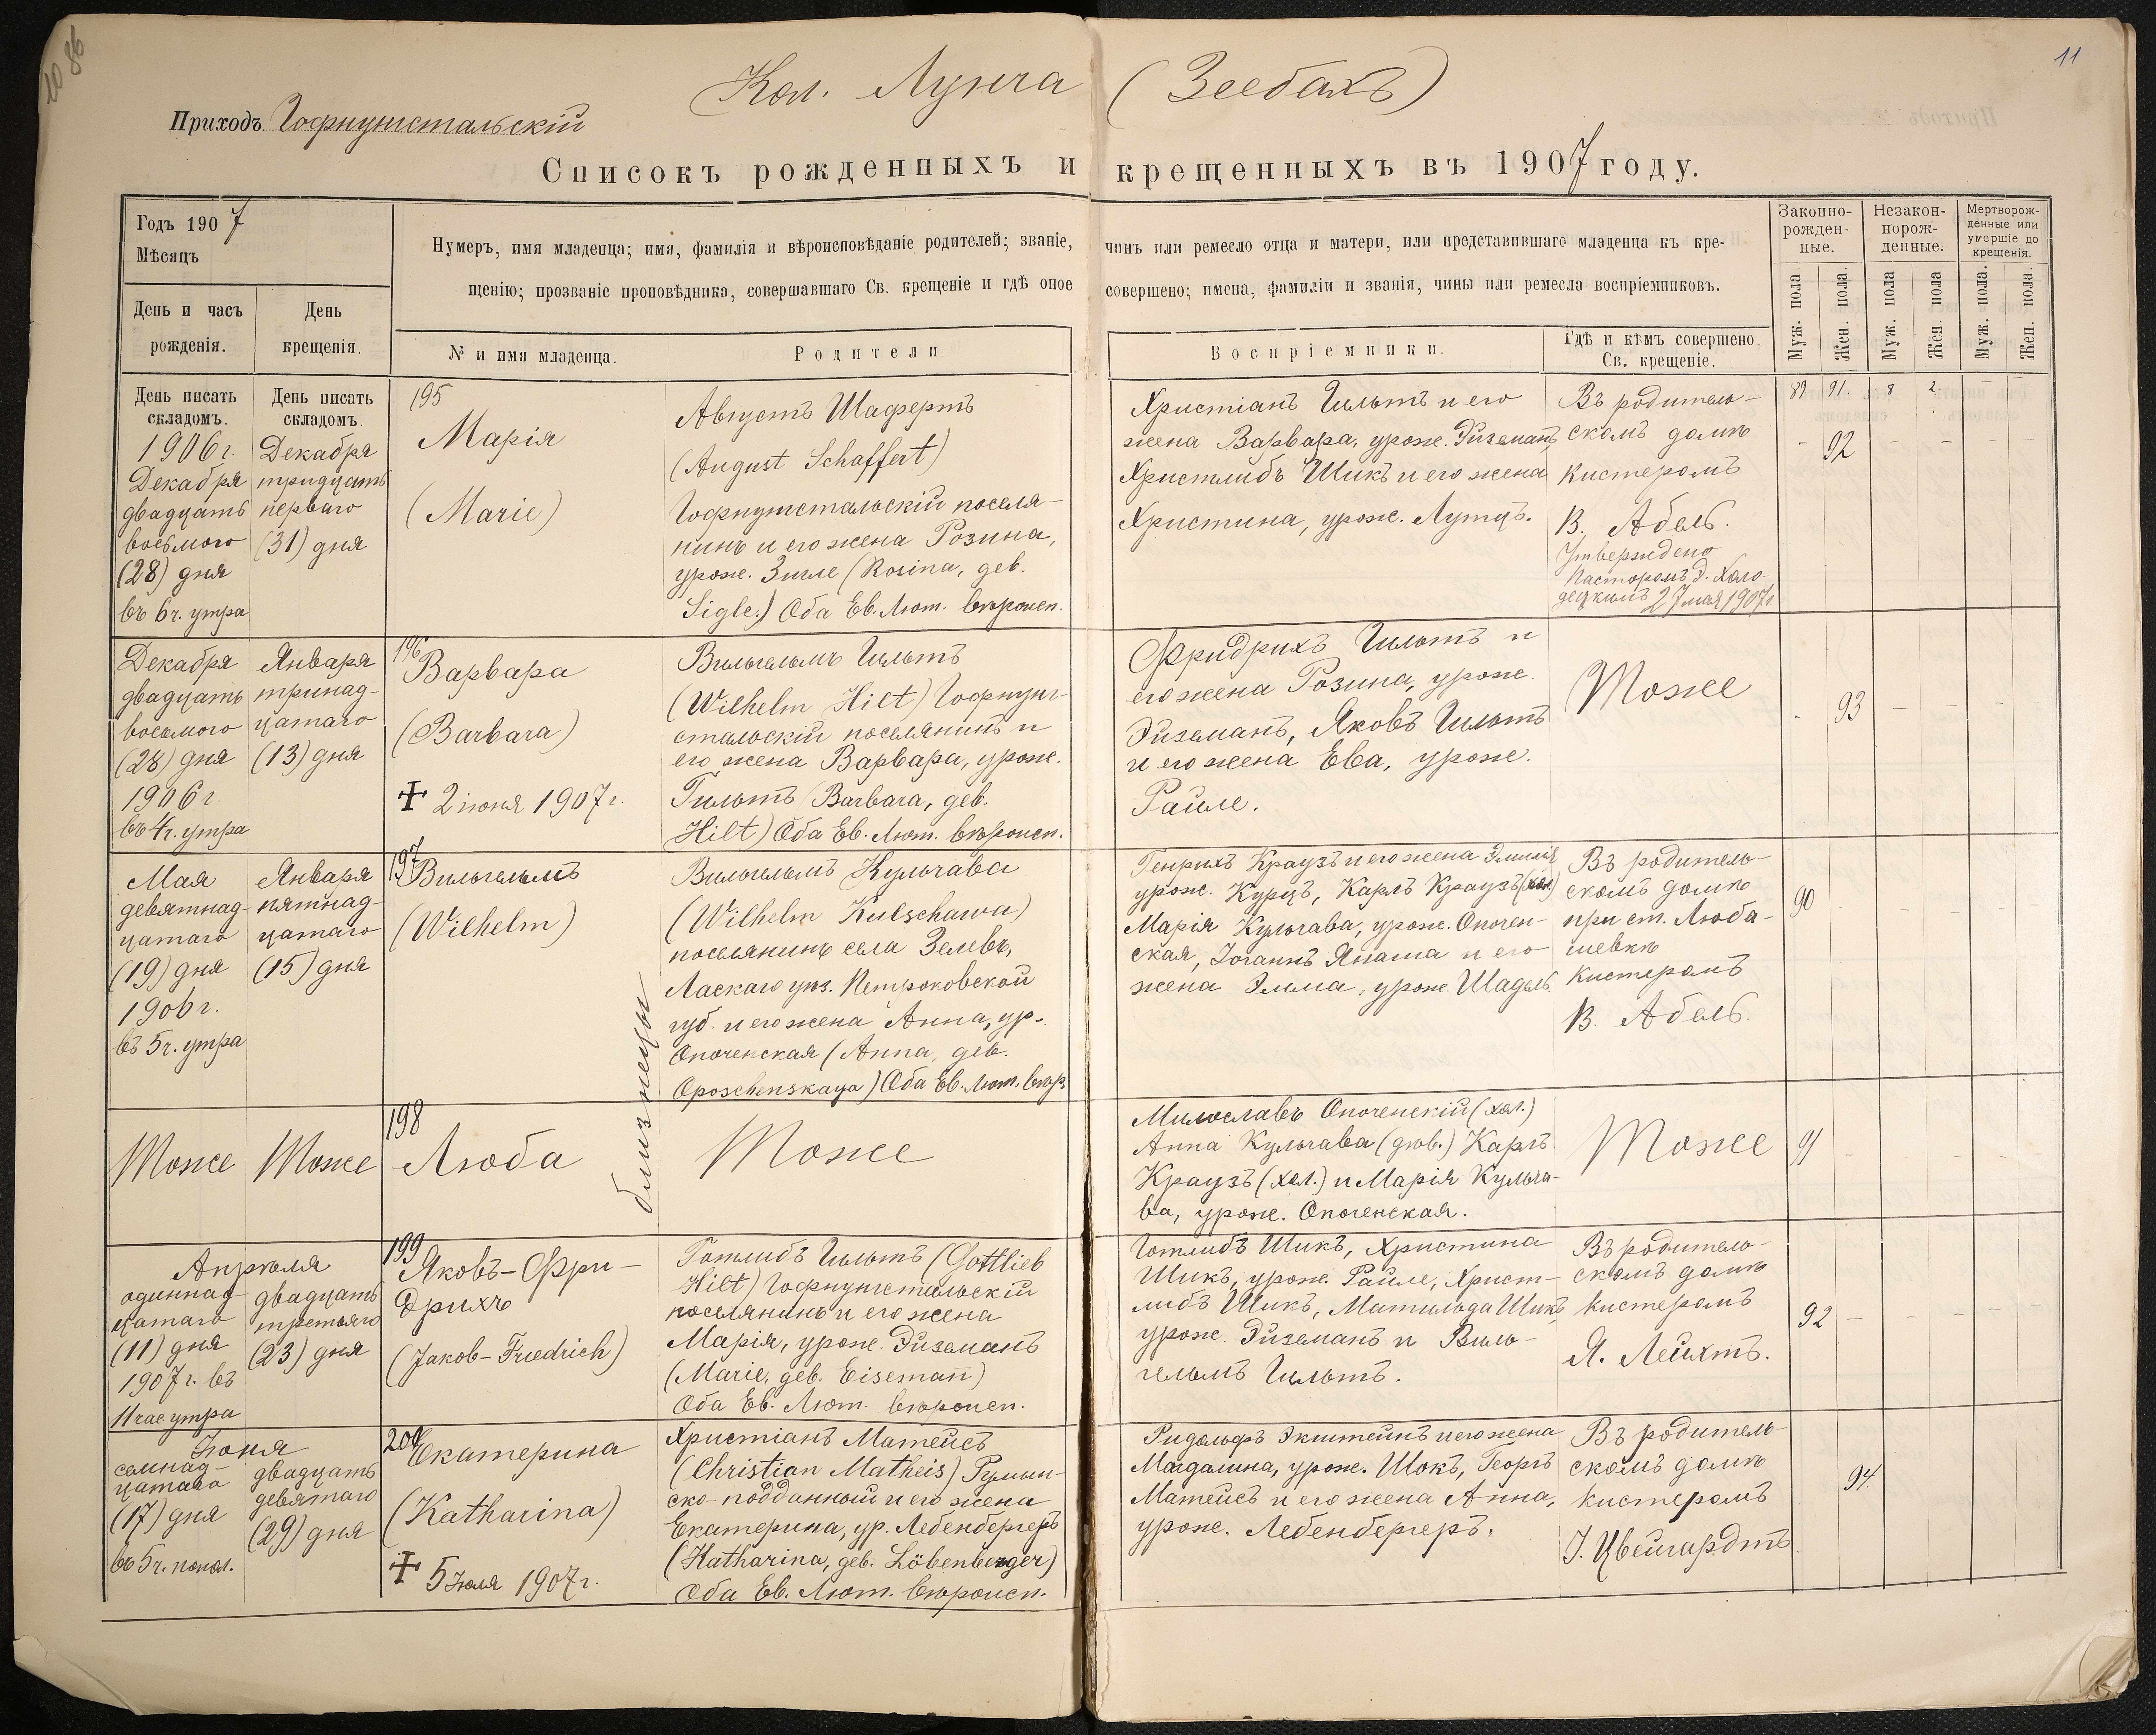 11
Кол. Лунга (Зеебахъ)
Приходъ Гофнунгстальскій
Списокъ рожденныхъ и крещенныхъ въ 1907 году.
Годъ 1907
Мѣсяцъ
День и часъ
рожденія.
День
крещенія.
Нумеръ, имя младенца; имя, фамилія и вѣроисповѣданіе родителей; званіе, чинъ или ремесло отца и матери, или представившаго младенца къ кре-
щенію; прозваніе проповѣдника, совершавшаго Св. крещеніе и гдѣ оное совершено; имена, фамиліи и званія, чины или ремесла воспріемниковъ.
№ и имя младенца.
Родители
Воспріемники.
Гдѣ и кѣмъ совершено
Св. крещеніе.
Законно-
рожден-
ные.
Незакон-
норож-
денные.
Мертворож-
денные или
умершіе до
крещенія.
Муж. пола
Жен. пола.
Муж. пола
Жен. пола
Муж. пола.
Жен. пола.
День писать
складомъ.
1906 г.
Декабря
двадцать
восьмого
(28) дня
въ 6 ч. утра
День писать
складомъ.
Декабря
тридцать
перваго
(31) дня
195
Марія
(Marie)
Августъ Шафертъ
(August Schaffert)
Гофнунгстальскій поселя-
нинъ и его жена Розина,
урож. Зигле (Rosina, geb.
Sigle.) Оба Ев. Лют. вѣроисп.
Христіанъ Гильтъ и его
жена Варвара, урож. Эйземанъ,
Христлибъ Шикъ и его жена
Христина, урож. Лутцъ.
Въ родитель-
скомъ домѣ
кистеромъ
В. Абель.
Утверждено
Пасторомъ Э. Холо-
децкимъ 27 мая 1907 г.
89 91. 8 2. - -
- 92 - - - -
Декабря
двадцать
восьмого
(28) дня
1906 г.
въ 4 ч. утра
Января
тринад-
цатаго
(13) дня
196
Варвара
(Barbara)
✝ 2 іюня 1907 г.
Вильгельмъ Гильтъ
(Wilhelm Hilt) Гофнунг-
стальскій поселянинъ и
его жена Варвара, урож.
Гильтъ (Barbara, geb.
Hilt) Оба Ев. Лют. вѣроисп.
Фридрихъ Гильтъ и
его жена Розина, урож.
Эйземанъ, Яковъ Гильтъ
и его жена Ева, урож.
Райле.
Тоже
- 93 - - -
Мая
девятнад-
цатаго
(19) дня
1906 г.
въ 5 ч. утра
Января
пятнад-
цатаго
(15) дня
197
Вильгельмъ
(Wilhelm)
близнецы
Вильгельмъ Кульчава
(Wilhelm Kulschawa)
поселянинъ села Зелевъ,
Ласкаго уѣз. Петроковской
губ. и его жена Анна, ур.
Опоченская (Анна, geb.
Oposchenskaya) Оба Ев. Лют. вѣр.
Генрихъ Краузъ и его жена Эмилія
урож. Курцъ, Карлъ Краузъ (хол.)
Марія Кульчава, урож. Опочен-
ская, Іоганнъ Янаша и его
жена Элма, урож. Шадель
Въ родитель-
скомъ домѣ
при ст. Люба-
шевкѣ
кистеромъ
В. Абель.
90 - - - -
Тоже
Тоже
198
Люба
Тоже
Милославъ Опоченскій (хол.)
Анна Кульчава (дѣв.) Карлъ
Краузъ (хол.) и Марія Кульча-
ва, урож. Опоченская.
Тоже
91 - - - - -
Апрѣля
одиннад-
цатаго
(11) дня
1907 г. въ
11 час утра
двадцать
третьяго
(23) дня
199
Яковъ-Фри-
дрихъ
(Jakob-Friedrich)
Готлибъ Гильтъ (Gottlieb
Hilt) Гофнунгстальскій
поселянинъ и его жена
Марія, урож. Эйземанъ
(Marie, geb. Eisemañ)
Оба Ев. Лют. вѣроисп.
Готлибъ Шикъ, Христина
Шикъ, урож. Райле, Христ-
либъ Шикъ, Матильда Шикъ,
урож. Эйземанъ и Виль-
гельмъ Гильтъ.
Въ родитель-
скомъ домѣ
кистеромъ
Я. Лейхтъ.
92 - - - - -
Іюня
семнад-
цатаго
(17) дня
въ 5 ч. попол.
двадцать
девятаго
(29) дня
200
Екатерина
(Katharina)
✝ 5 Іюля 1907 г.
Христіанъ Матейсъ
(Christian Matheis) Румын-
ско-подданный и его жена
Екатерина, ур. Лебенбергеръ
(Katharina, geb. Löbenberger)
Оба Ев. Лют. вѣроисп.
Ридольфъ Экштейнъ и его жена
Магдалина, урож. Шокъ, Георгъ
Матейсъ и его жена Анна,
урож. Лебенбергеръ.
Въ родитель-
скомъ домѣ
кистеромъ
І. Цвейгардтъ
94.